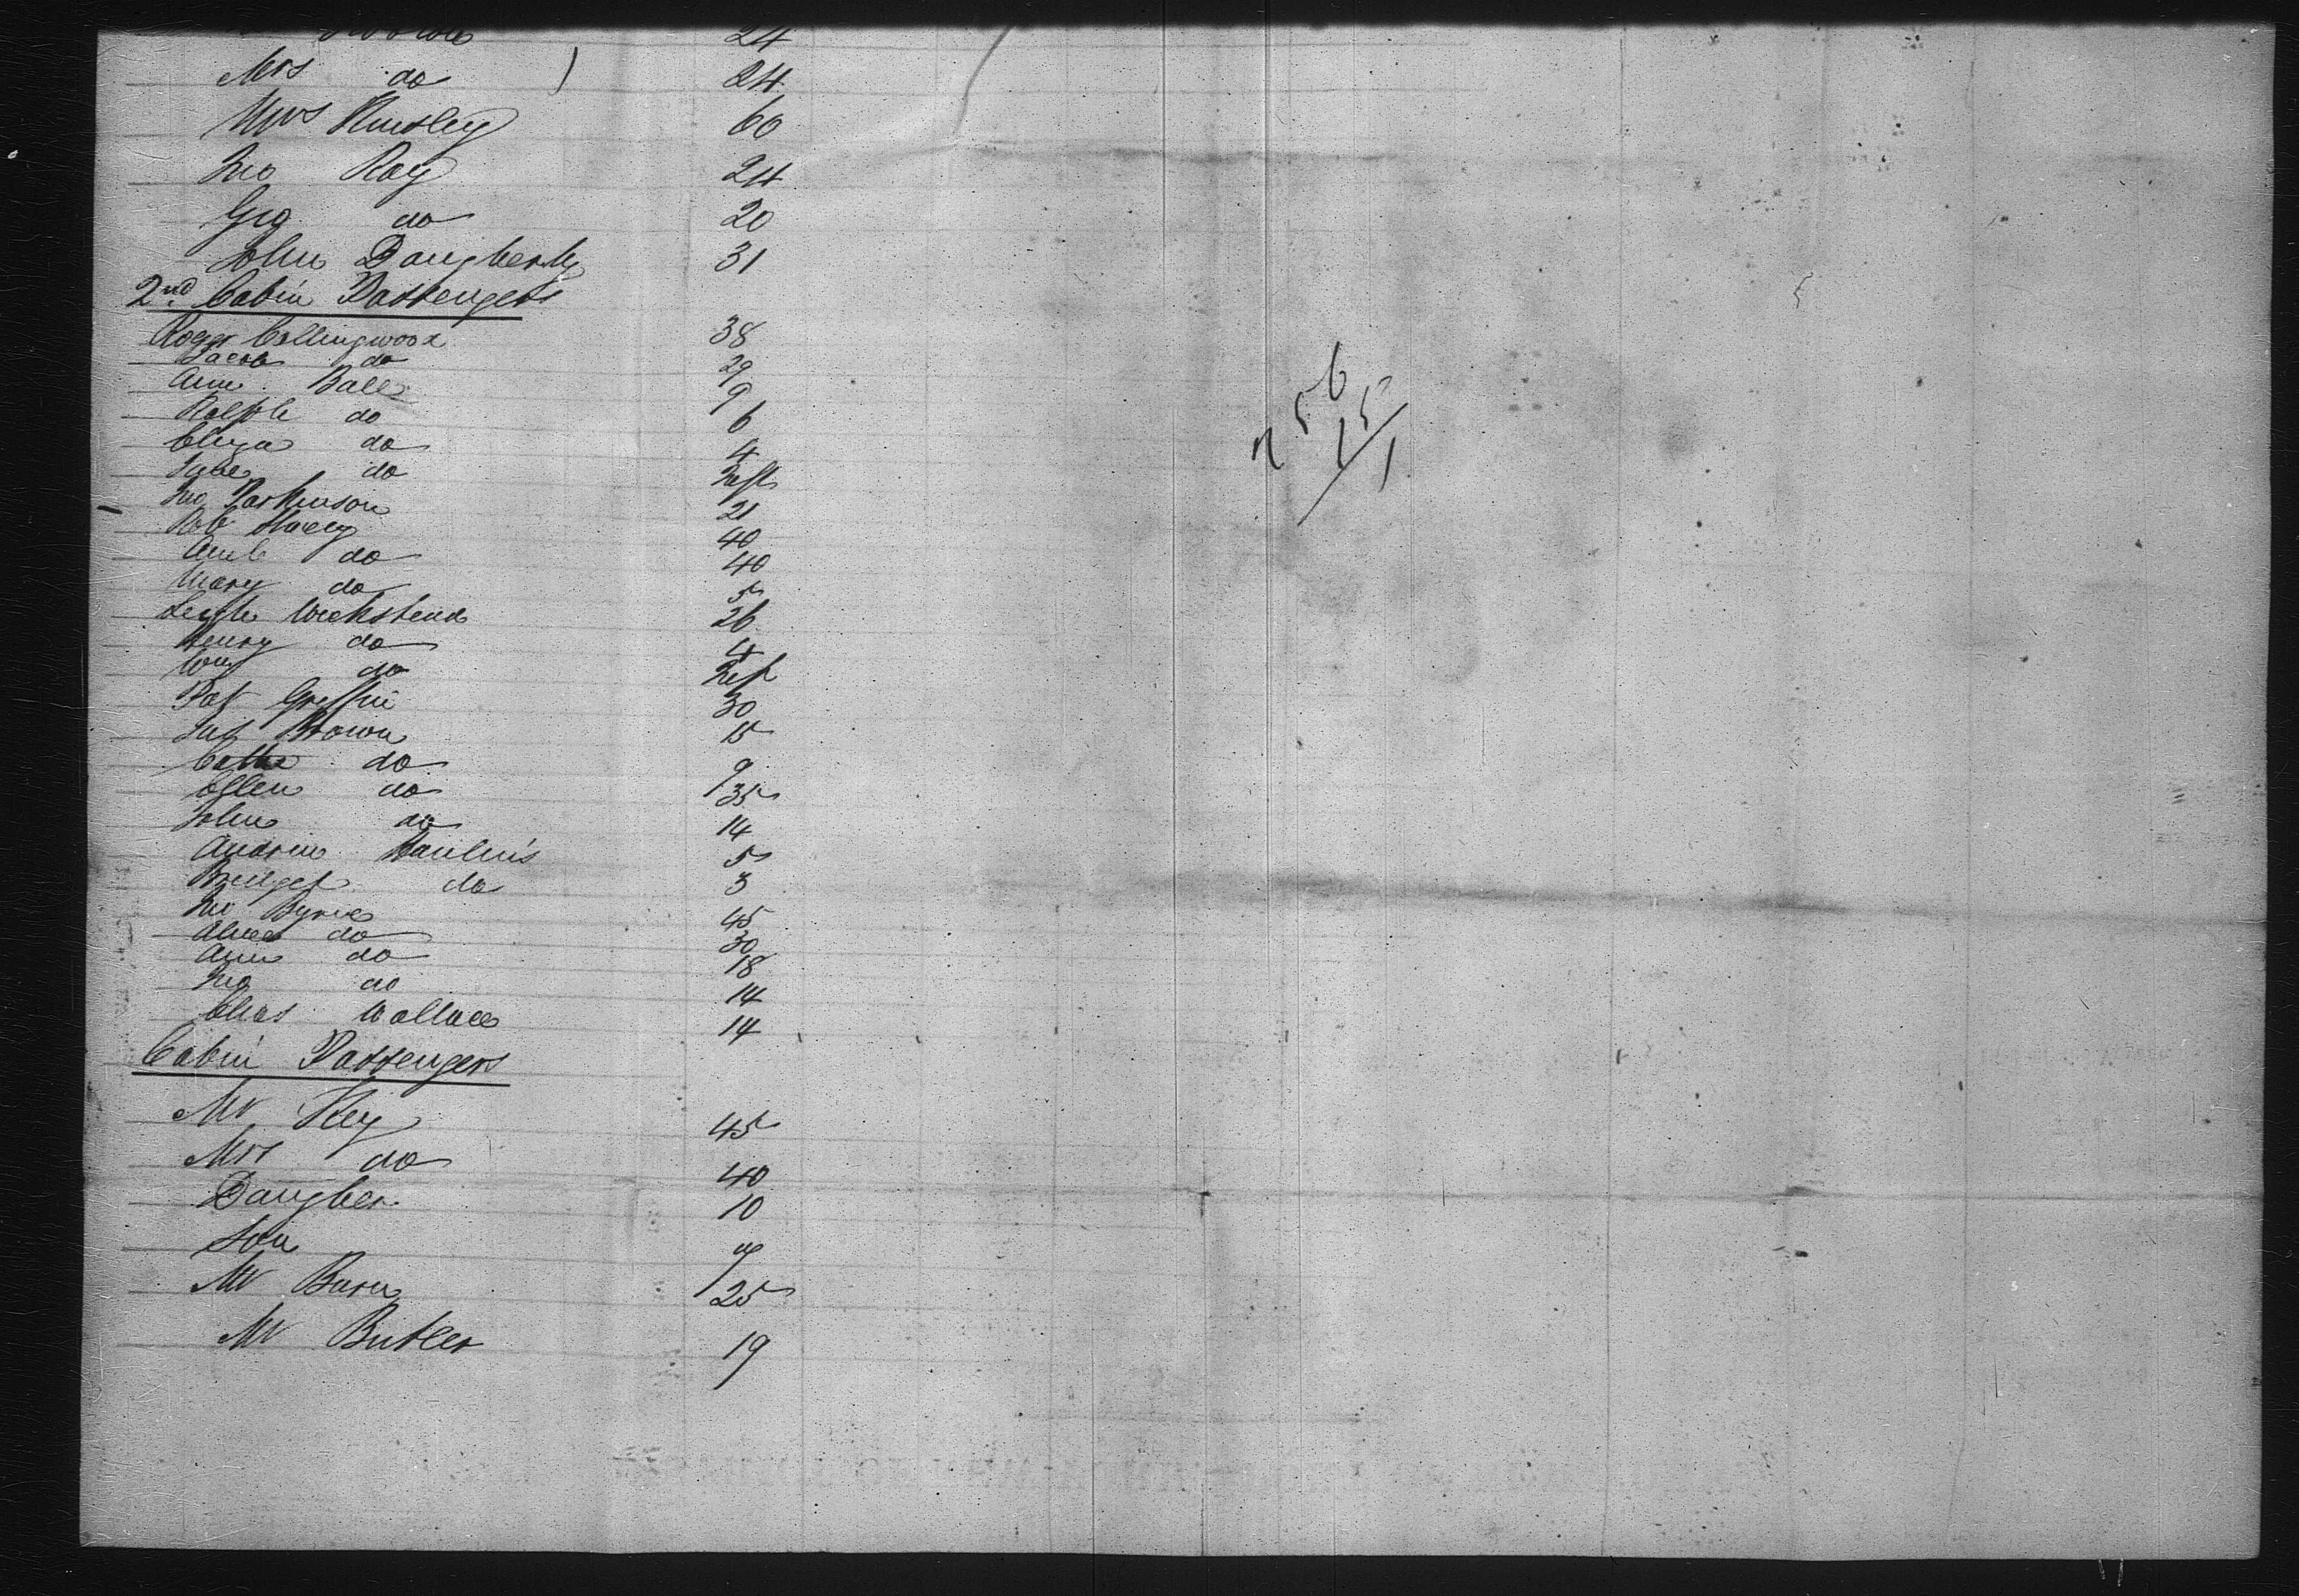 24
Mrs do 24
Mrs Hursley 60
Jno Ray 24
Geo do 20
John Daugherty 31
2nd Cabin Passengers
Roger Collingwood 38
Jacob do 29
Ann Ball 9
Ralph do 6
Eliza do 4
Jane do Inft
Jno Parkinson 21
Rob Stacey 40
do 40
Mary do 5
26
Henry do 4
Wm do Inft
Pat Griffin 30
Brown 15
Cathe do 9
Ellen do 35
John do 14
Andrew 5
Bridget do 3
Jno Byrne 45
Alice do 30
Ann do 18
Jno do 14
Chas Wallace 14
Cabin Passengers
Mr Key 45
Mrs do 40
Daughter 10
Son 9
Mr Burn 25
Mr Butler 19